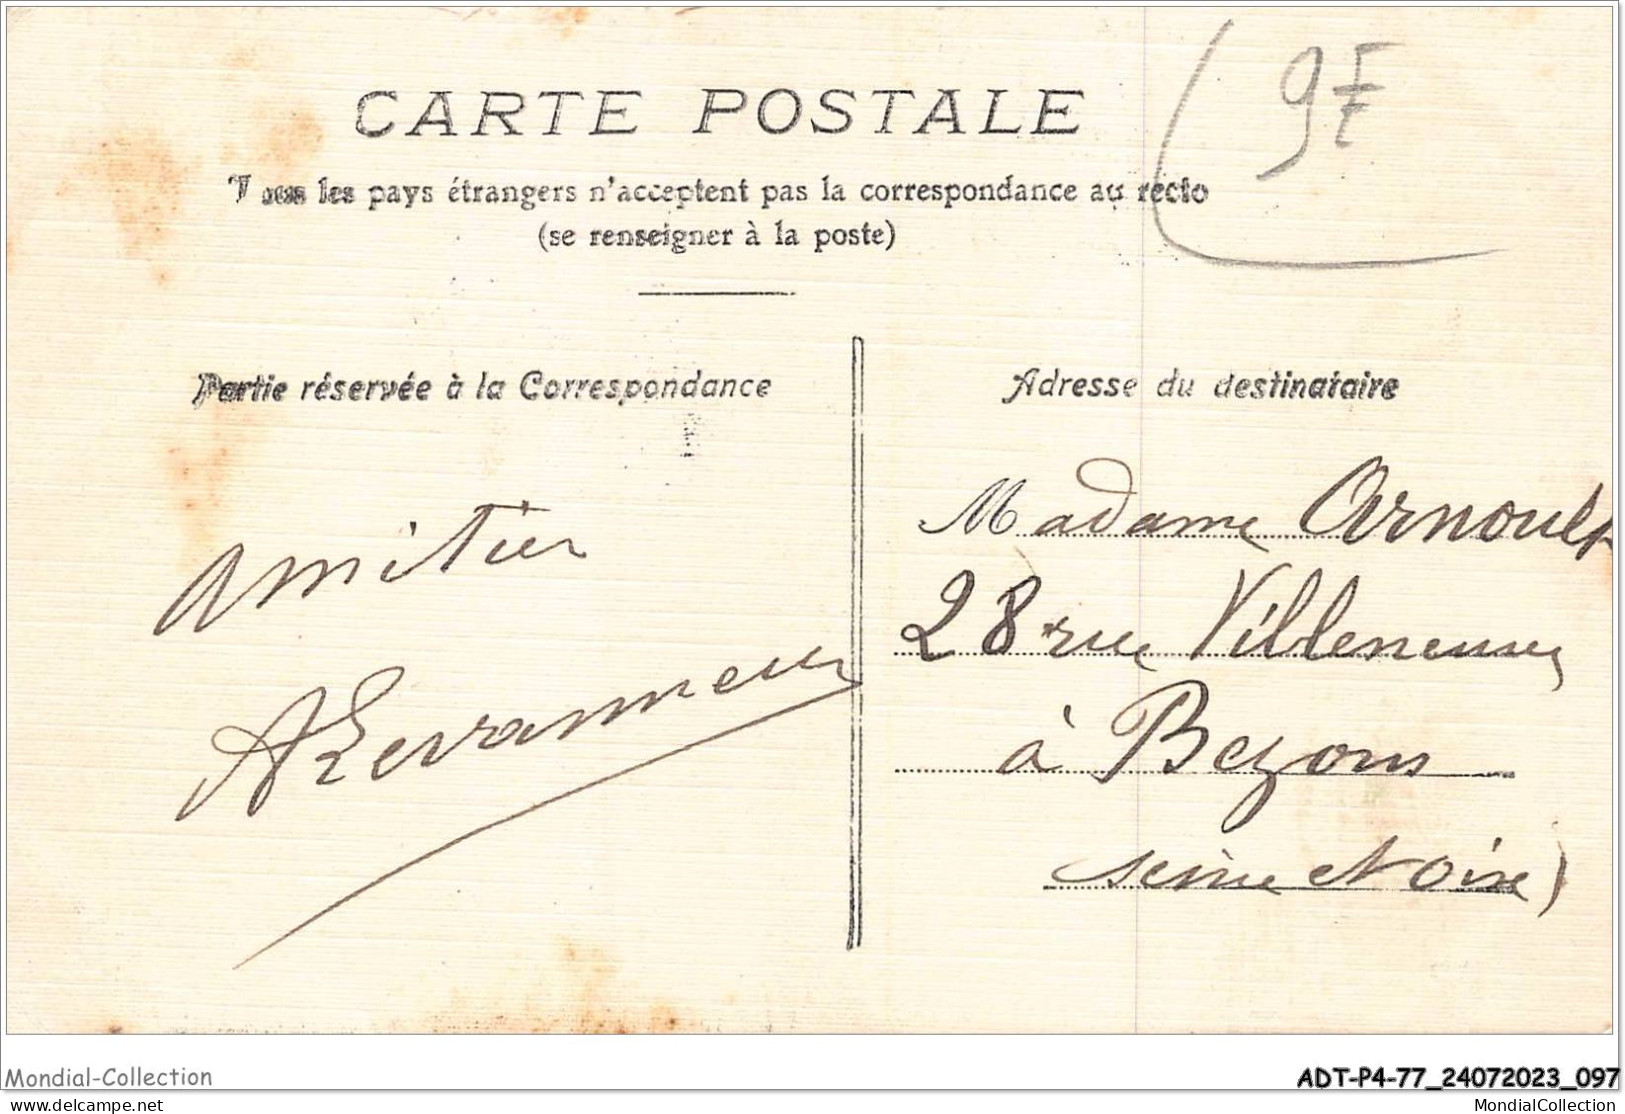 9F
CARTE POSTALE
Tous les pays étrangers n'acceptent pas la correspondance au recto
(se renseigner à la poste)
Partie réservée à la Correspondance
Adresse du destinataire
amitier
Madame Arnoult
28 rue Villeneuve
à Bezons
Seine et Oise)
Mondial-Collection
ADT-P4-77_24072023_097
www.delcampe.net
MondialCollection